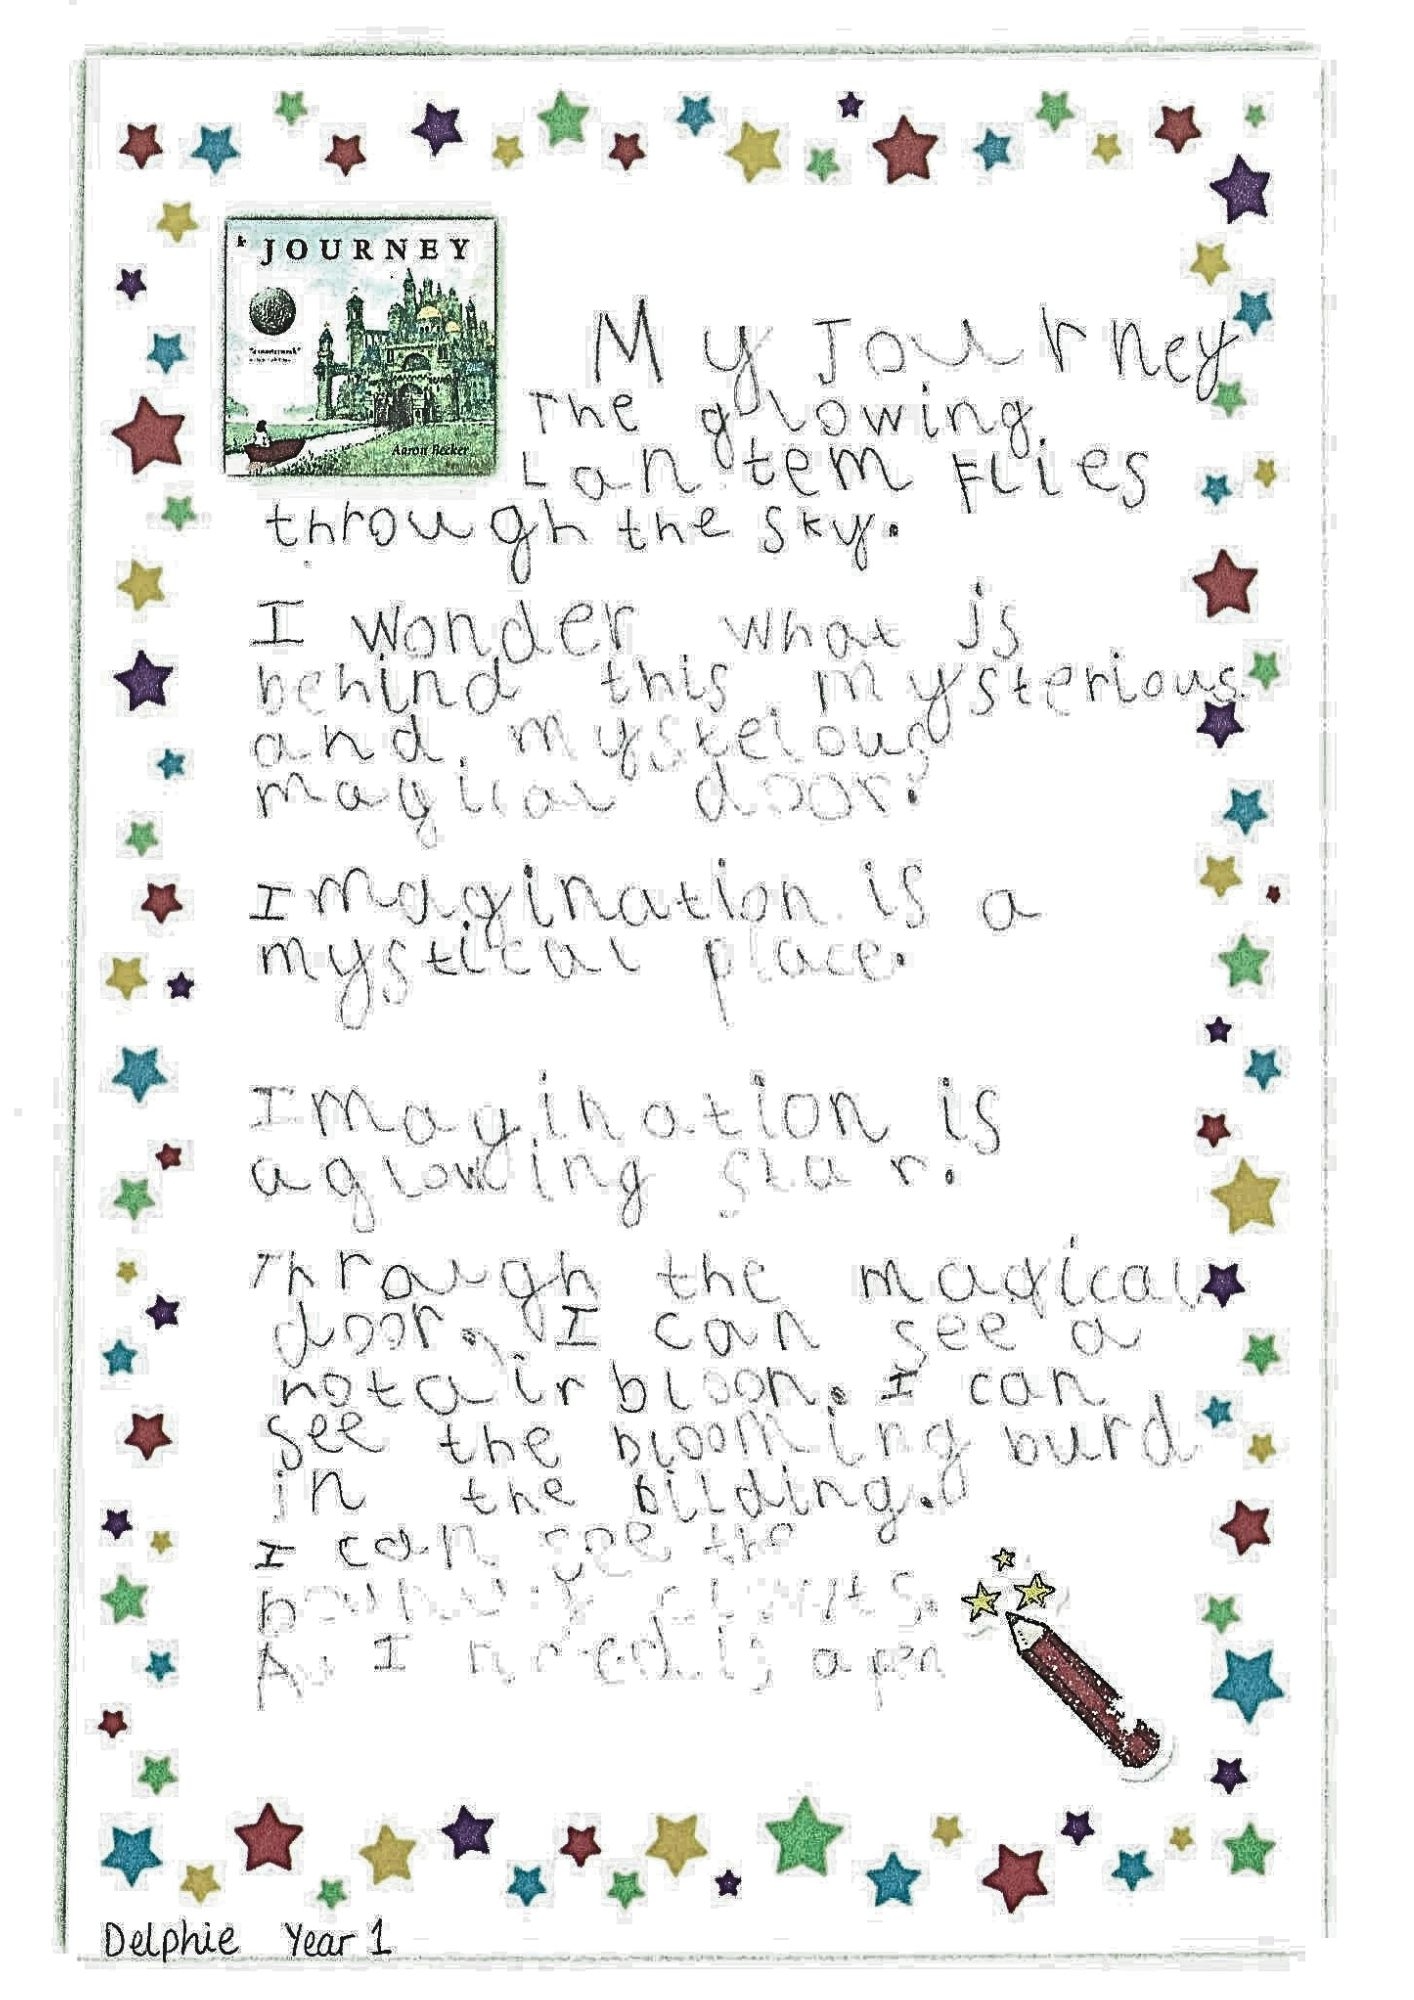 JOURNEY
Aaron Becker
My Journey
The glowing
Lantern Flies
through the sky.
I wonder what is
behind this mysterious
and
magical door.
Imagination is a
mystical place.
Imagination is
a glowing star.
Through the magical
door, I can see a
hot air bloon. I can
see the blooming burd
in the bilding.
I can see the
I need is a pen
Delphie Year 1